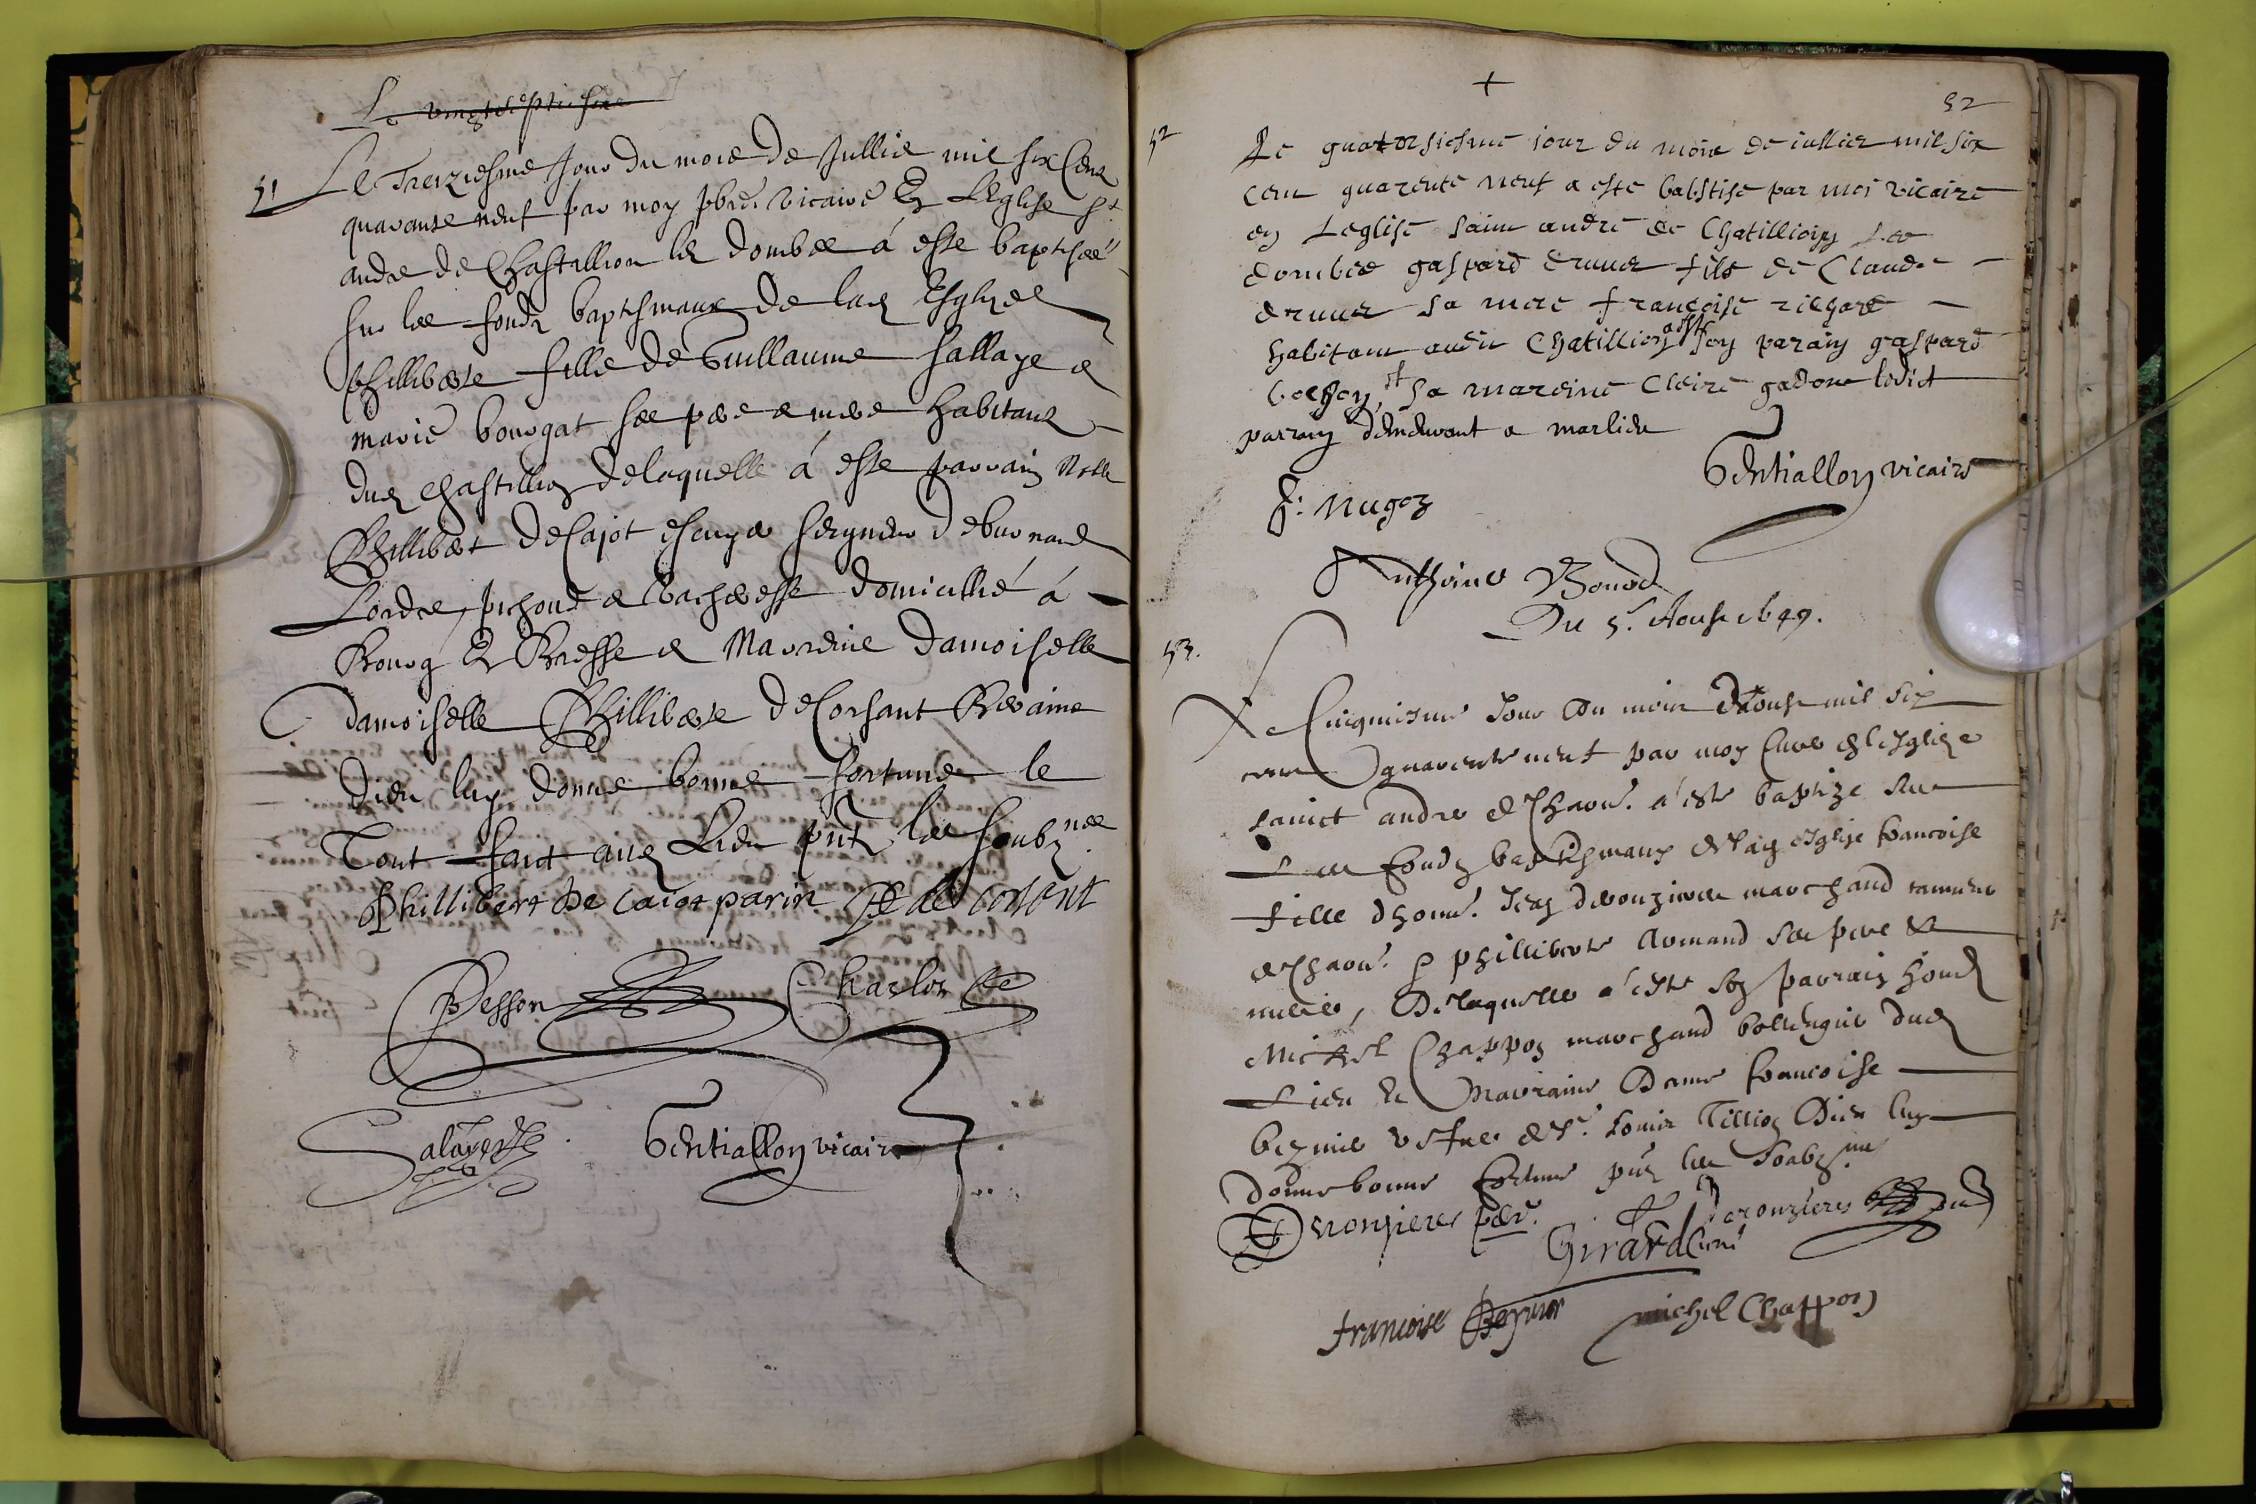 Le vingtseptiesme
51 Le Treiziesme Jour du mois de Jullie mil six Cens
quarante neuf par moy pbre vicaire En L'Eglise St
andre de Chastillion les dombes á este baptisée
sur les fondz baptismaux de lad Esglize
phillibete fille de Guillaume Sallaye &
marie bourgat ses pere & mere habitans
dud chastillion de laquelle á este parrain Noble
Phillibert De Cajot escuyer seigneur de burnand
Lordre, pichoud & domicillié á
Bourg En Bresse & Marreine damoiselle
damoiselle Philliberte De Corsant
dieu luy donne bonne fortune le
Tout fait aud Lieu pnt les soubznes
Phillibert De caiot parin P De Corsent
Besson Charlon
Salaye Gentiallon vicaire
+
52
52 Le quatorsiesme iour du mois de iullier mil six
cent quarente neuf a este babstise par moi vicaire
en Leglise saint andre de Chatillion Les
dombes gaspard druuer fils de Claude
druuer sa mere francoise richard
habitant audit Chatillion son parain gaspard
sa mareine Claire ledict
parrain demeurant a marlieu
Gentiallon vicaire
F. Nugoz
Anthoine Bonod
Du 5e Aoust 1649.
53. Le Cinquiesme Jour du mois d'Aoust mil six
cens quarente neuf par moy Cure en l'esglize
sainct andre de Chaon. a este baptize sur
Les fondz baptismaux de lad esglize francoise
fille d'honn. Jean derouzieres marchand tanneur
de Chaon. & phillibete Armand ses pere &
mere, De laquelle a este son parrain hon.
Michel Chappon marchand bollengier dud
Lieu & Marraine Dame francoise
vefue de Sr. Louis Tillion Dieu luy
donne bonne fortune pnt les soubznes
Derouzieres per. Derouzieres
Girard Curé
francoise michel Chappon